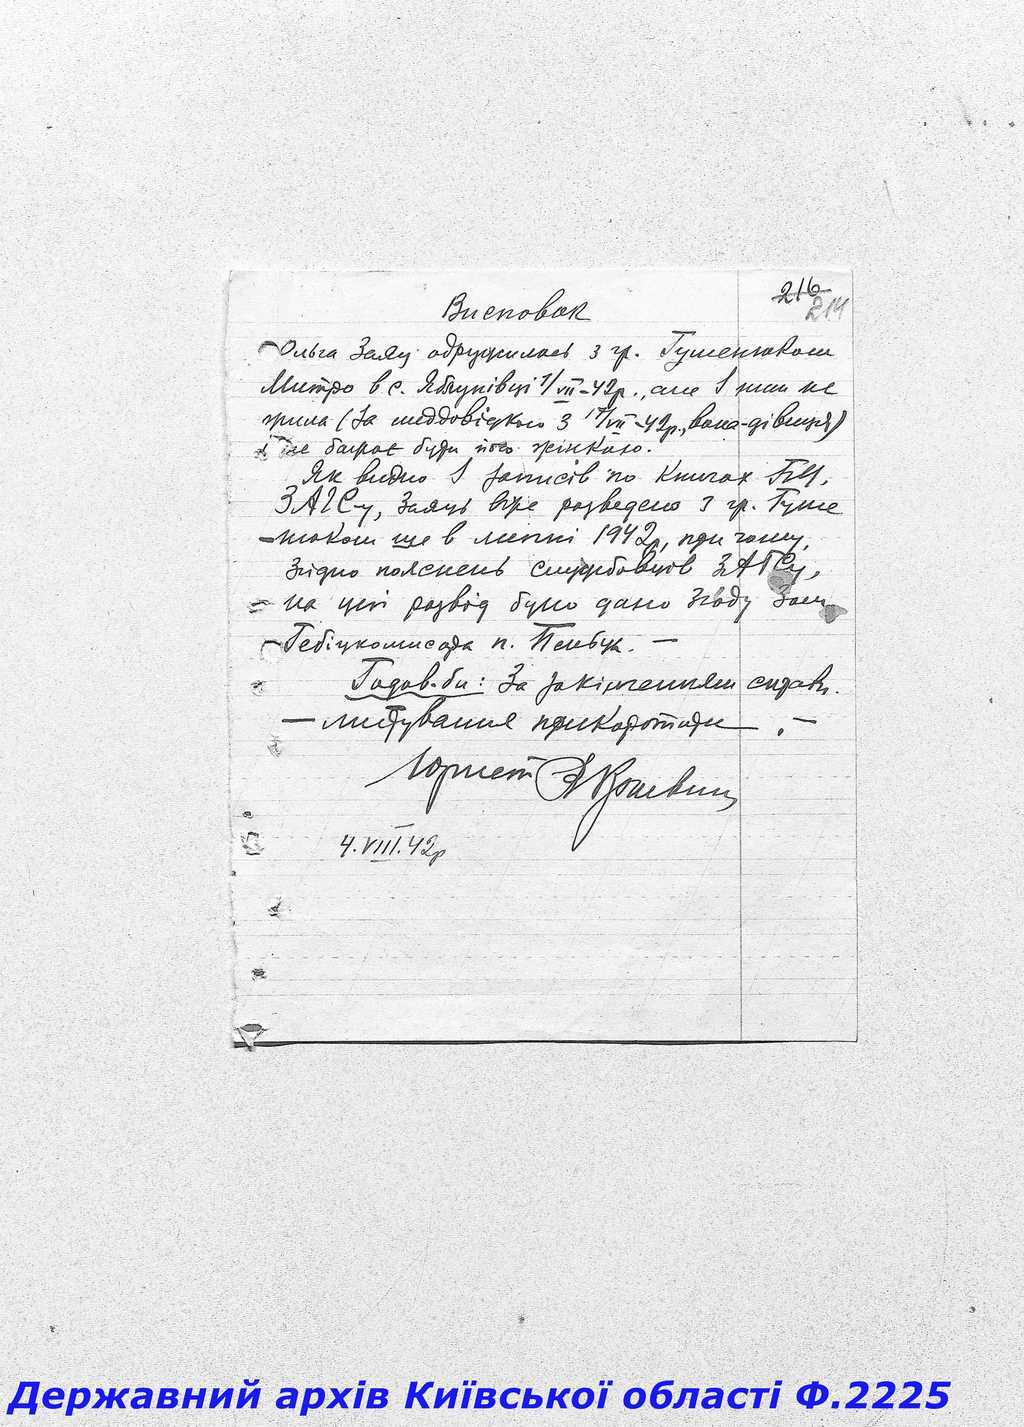 216
214
Висновок
Ольга Заяц одружилась з гр. Гуменюком
Митро в с. Яблунівці 1/VII-42р., але з ним не
жила (за меддовідкою з 17/VII-42р., вона-дівиця)
і не бажає бути його жінкою.
Як видно з записів по книгах
ЗАГСу, Заяць вже розведено з гр. Гуме
-нюком ще в липні 1942р, при чому,
згідно пояснень службовців ЗАГСу,
на цей розвід було дано згоду Зам.
Гебіцкомісара п.
За закінченням справи
- листування прикоротити. -
Юрист
4.VIII.42р
Державний архів Київської області Ф.2225